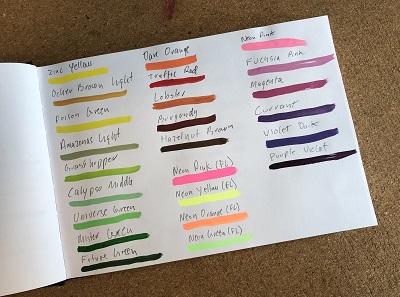 Zinc Yellow
Ocher Brown Light
Poison Green
Amazonas Light
Grasshopper
Calypso Middle
Universe Green
Mister Green
Future Green
Dare Orange
Traffic Red
Lobster
Burgundy
Hazelnut Brown
Neon Pink (FL)
Neon Yellow (FL)
Neon Orange (FL)
Neon Green (FL)
Neon Pink
Fuchsia Pink
Magenta
Currant
Violet Dark
Purple Violet